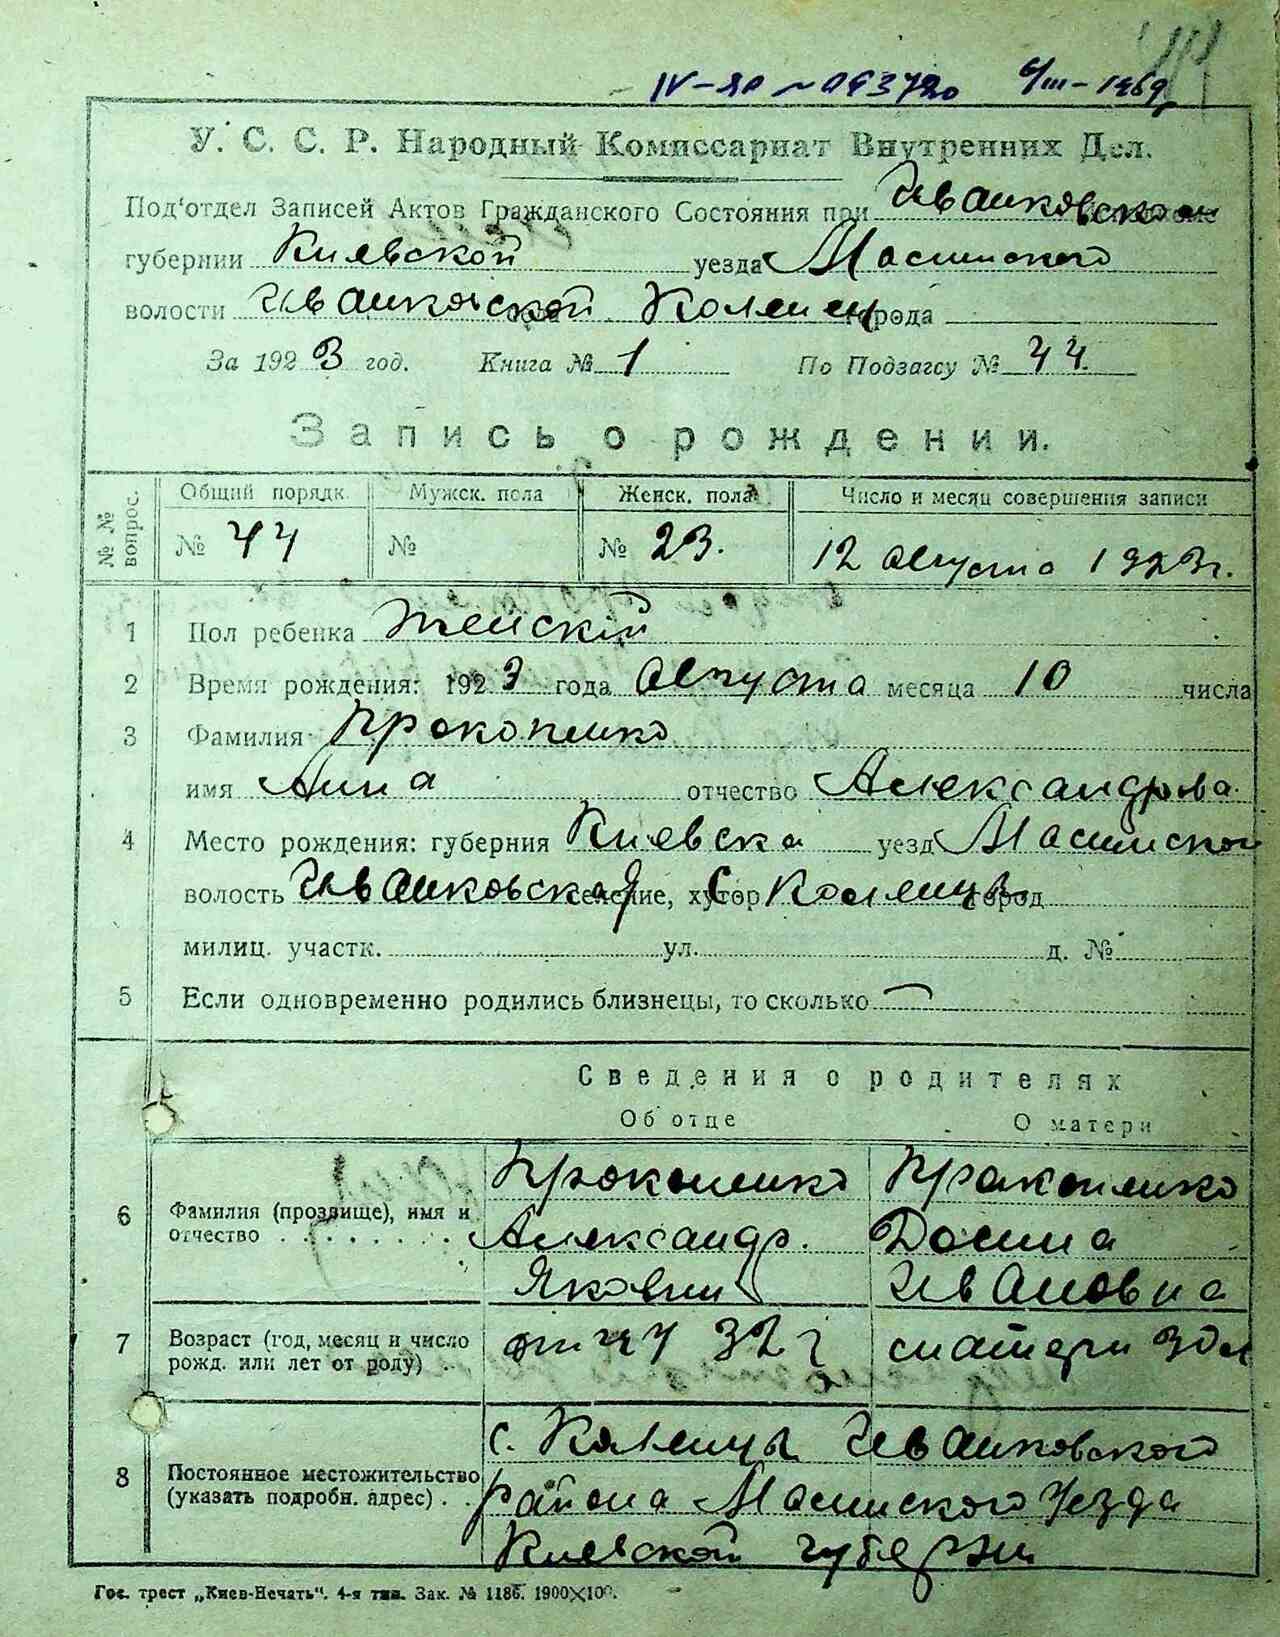 IV-ЯР № 063720 6/III-1969
У. С. С. Р. Народный Комиссариат Внутренних Дел.
Под'отдел Записей Актов Гражданского Состояния при Иванковском
губернии Киевской уезда Малинского
волости Иванковской города
За 1923 год. Книга № 1 По Подзагсу № 44.
Запись о рождении.
№ № вопрос. Общий порядк. Мужск. пола Женск. пола Число и месяц совершения записи
№ 44 № № 23. 12 августа 1923г.
1 Пол ребенка женскій
2 Время рождения: 1923 года Августа месяца 10 числа
3 Фамилия Прокопенко
имя Анна отчество Александрова.
4 Место рождения: губерния Киевска уезд
волость Иванковская селение, хутор с город
милиц. участк. ул. д. №
5 Если одновременно родились близнецы, то сколько —
Сведения о родителях
Об отце О матери
6 Фамилия (прозвище), имя и отчество . . . . . . .
Прокопенко
Александр.
Прокопенко
Ивановна
7 Возраст (год, месяц и число рожд. или лет от роду) . .
отцу 32 г
матери 30 л
8 Постоянное местожительство (указать подробн. адрес) . .
с. Иванковского
района Малинского уезда
Киевской губернии
Гос. трест „Киев-Печать“. 4-я тип. Зак. № 1186. 1900×100.